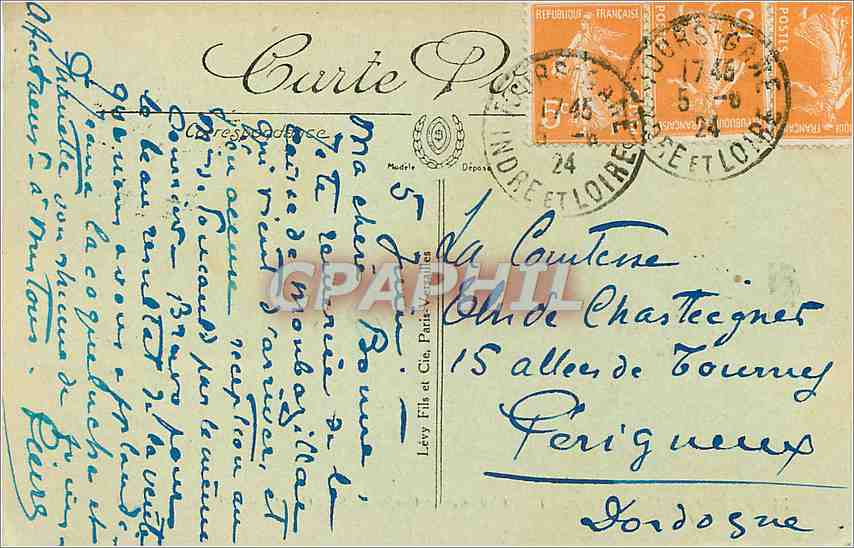 Carte Po
Correspondance
Modèle Déposé
RÉPUBLIQUE FRANÇAISE
5
POSTES
TOURS-GARE
17 45
5 -6
24
INDRE ET LOIRE
TOURS-GARE
17 45
24
INDRE ET LOIRE
Lévy Fils et Cie, Paris-Versailles
CPAPHIL
5 Juin. –
Ma chère Bonne,
Je te remercie de la
caisse de Monbazillac
qui vient d'arriver, et
accuse réception au
par le même
Courrier – Bravo pour
le beau résultat de la vente
que nous avons applaudi
la coqueluche et
vous
à tous.
Pierre
La Comtesse
de Chasteigner
15 allées de Tourny
Périgueux
Dordogne